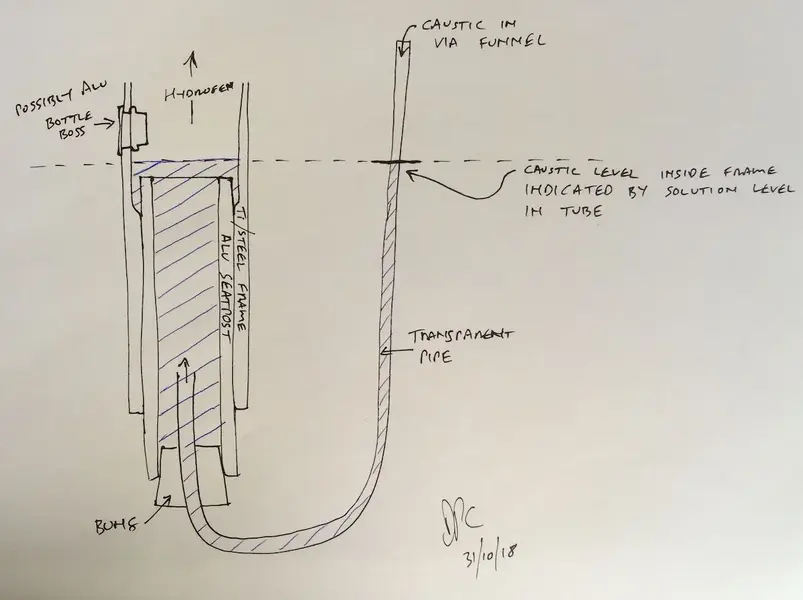 CAUSTIC IN
VIA FUNNEL
HYDROGEN
POSSIBLY ALU
BOTTLE
BOSS
CAUSTIC LEVEL INSIDE FRAME
INDICATED BY SOLUTION LEVEL
IN TUBE
TI/STEEL FRAME
ALU SEATPOST
TRANSPARENT
PIPE
BUNG
DPC
31/10/18